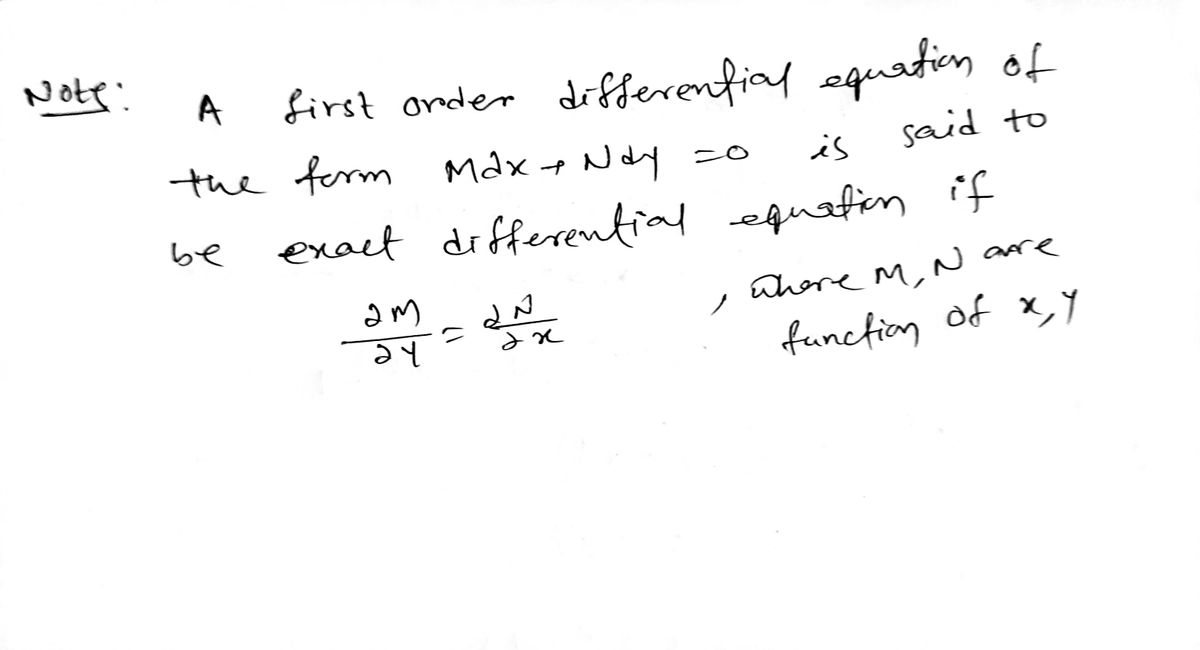 Note: A first order differential equation of
the form Mdx + Ndy = 0 is said to
be exact differential equation if
∂M/∂y = ∂N/∂x , where M, N are
function of x, y